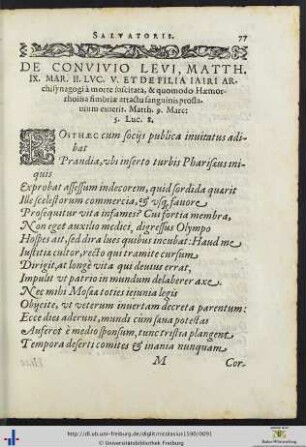 SALVATORIS. 77
DE CONVIVIO LEVI, MATTH.
IX. MAR. II. LVC. V. ET DE FILIA IAIRI AR-
chisynagogi à morte suscitata, & quomodo Hæmor-
rhoissa fimbriæ attactu sanguinis proflu-
uium euaserit. Matth. 9. Marc:
5. Luc. 8.
POSTHÆC cum socijs publica inuitatus adi-
bat
Prandia, vbi inserto turbis Phariseus ini-
quis
Exprobat assessum indecorem, quid sordida quærit
Ille scelestorum commercia, & vsq, fauore
Prosequitur vita infames? Cui fortia membra,
Non eget auxilio medici, digressus Olympo
Hospes ait, sed dira lues quibus incubat: Haud me
Iustitiæ cultor, recto qui tramite cursum
Dirigit, at longè vita qui deuius errat,
Impulit vt patrio in mundum delaberer axe.
Nec mihi Mosea toties ieiunia legis
Obijcite, vt veterum inuertam decreta parentum:
Ecce dies aderunt, mundi cùm sana potestas
Auferet è medio sponsum, tunc tristia plangent
Tempora deserti comites & inania nunquam
M Cor-
http://dl.ub.uni-freiburg.de/diglit/nicolasius1590/0091
© Universitätsbibliothek Freiburg